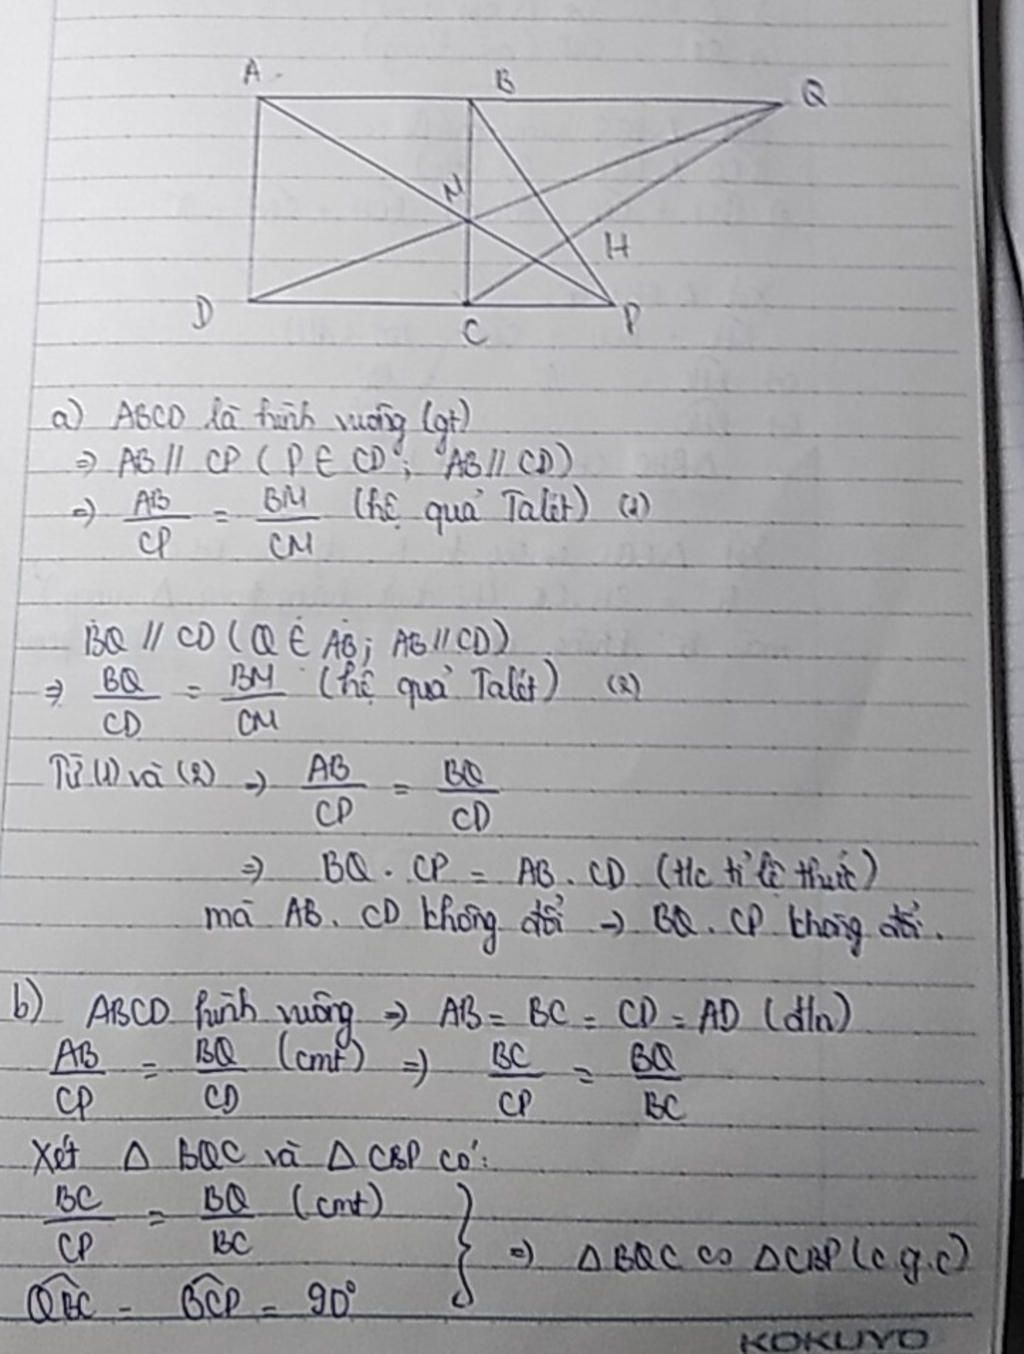 A B Q
M
H
D C P
a) ABCD là hình vuông (gt)
⇒ AB // CP (P ∈ CD; AB // CD)
⇒ AB/CP = BM/CM (hệ quả Talét) (1)
BQ // CD (Q ∈ AB; AB // CD)
⇒ BQ/CD = BM/CM (hệ quả Talét) (2)
Từ (1) và (2) ⇒ AB/CP = BQ/CD
⇒ BQ . CP = AB . CD (t/c tỉ lệ thức)
mà AB . CD không đổi → BQ . CP không đổi.
b) ABCD hình vuông ⇒ AB = BC = CD = AD (đ/n)
AB/CP = BQ/CD (cmt) ⇒ BC/CP = BQ/BC
Xét Δ BQC và Δ CBP có:
BC/CP = BQ/BC (cmt)
QBC = BCP = 90° } ⇒ Δ BQC ∽ Δ CBP (c.g.c)
KOKUYO